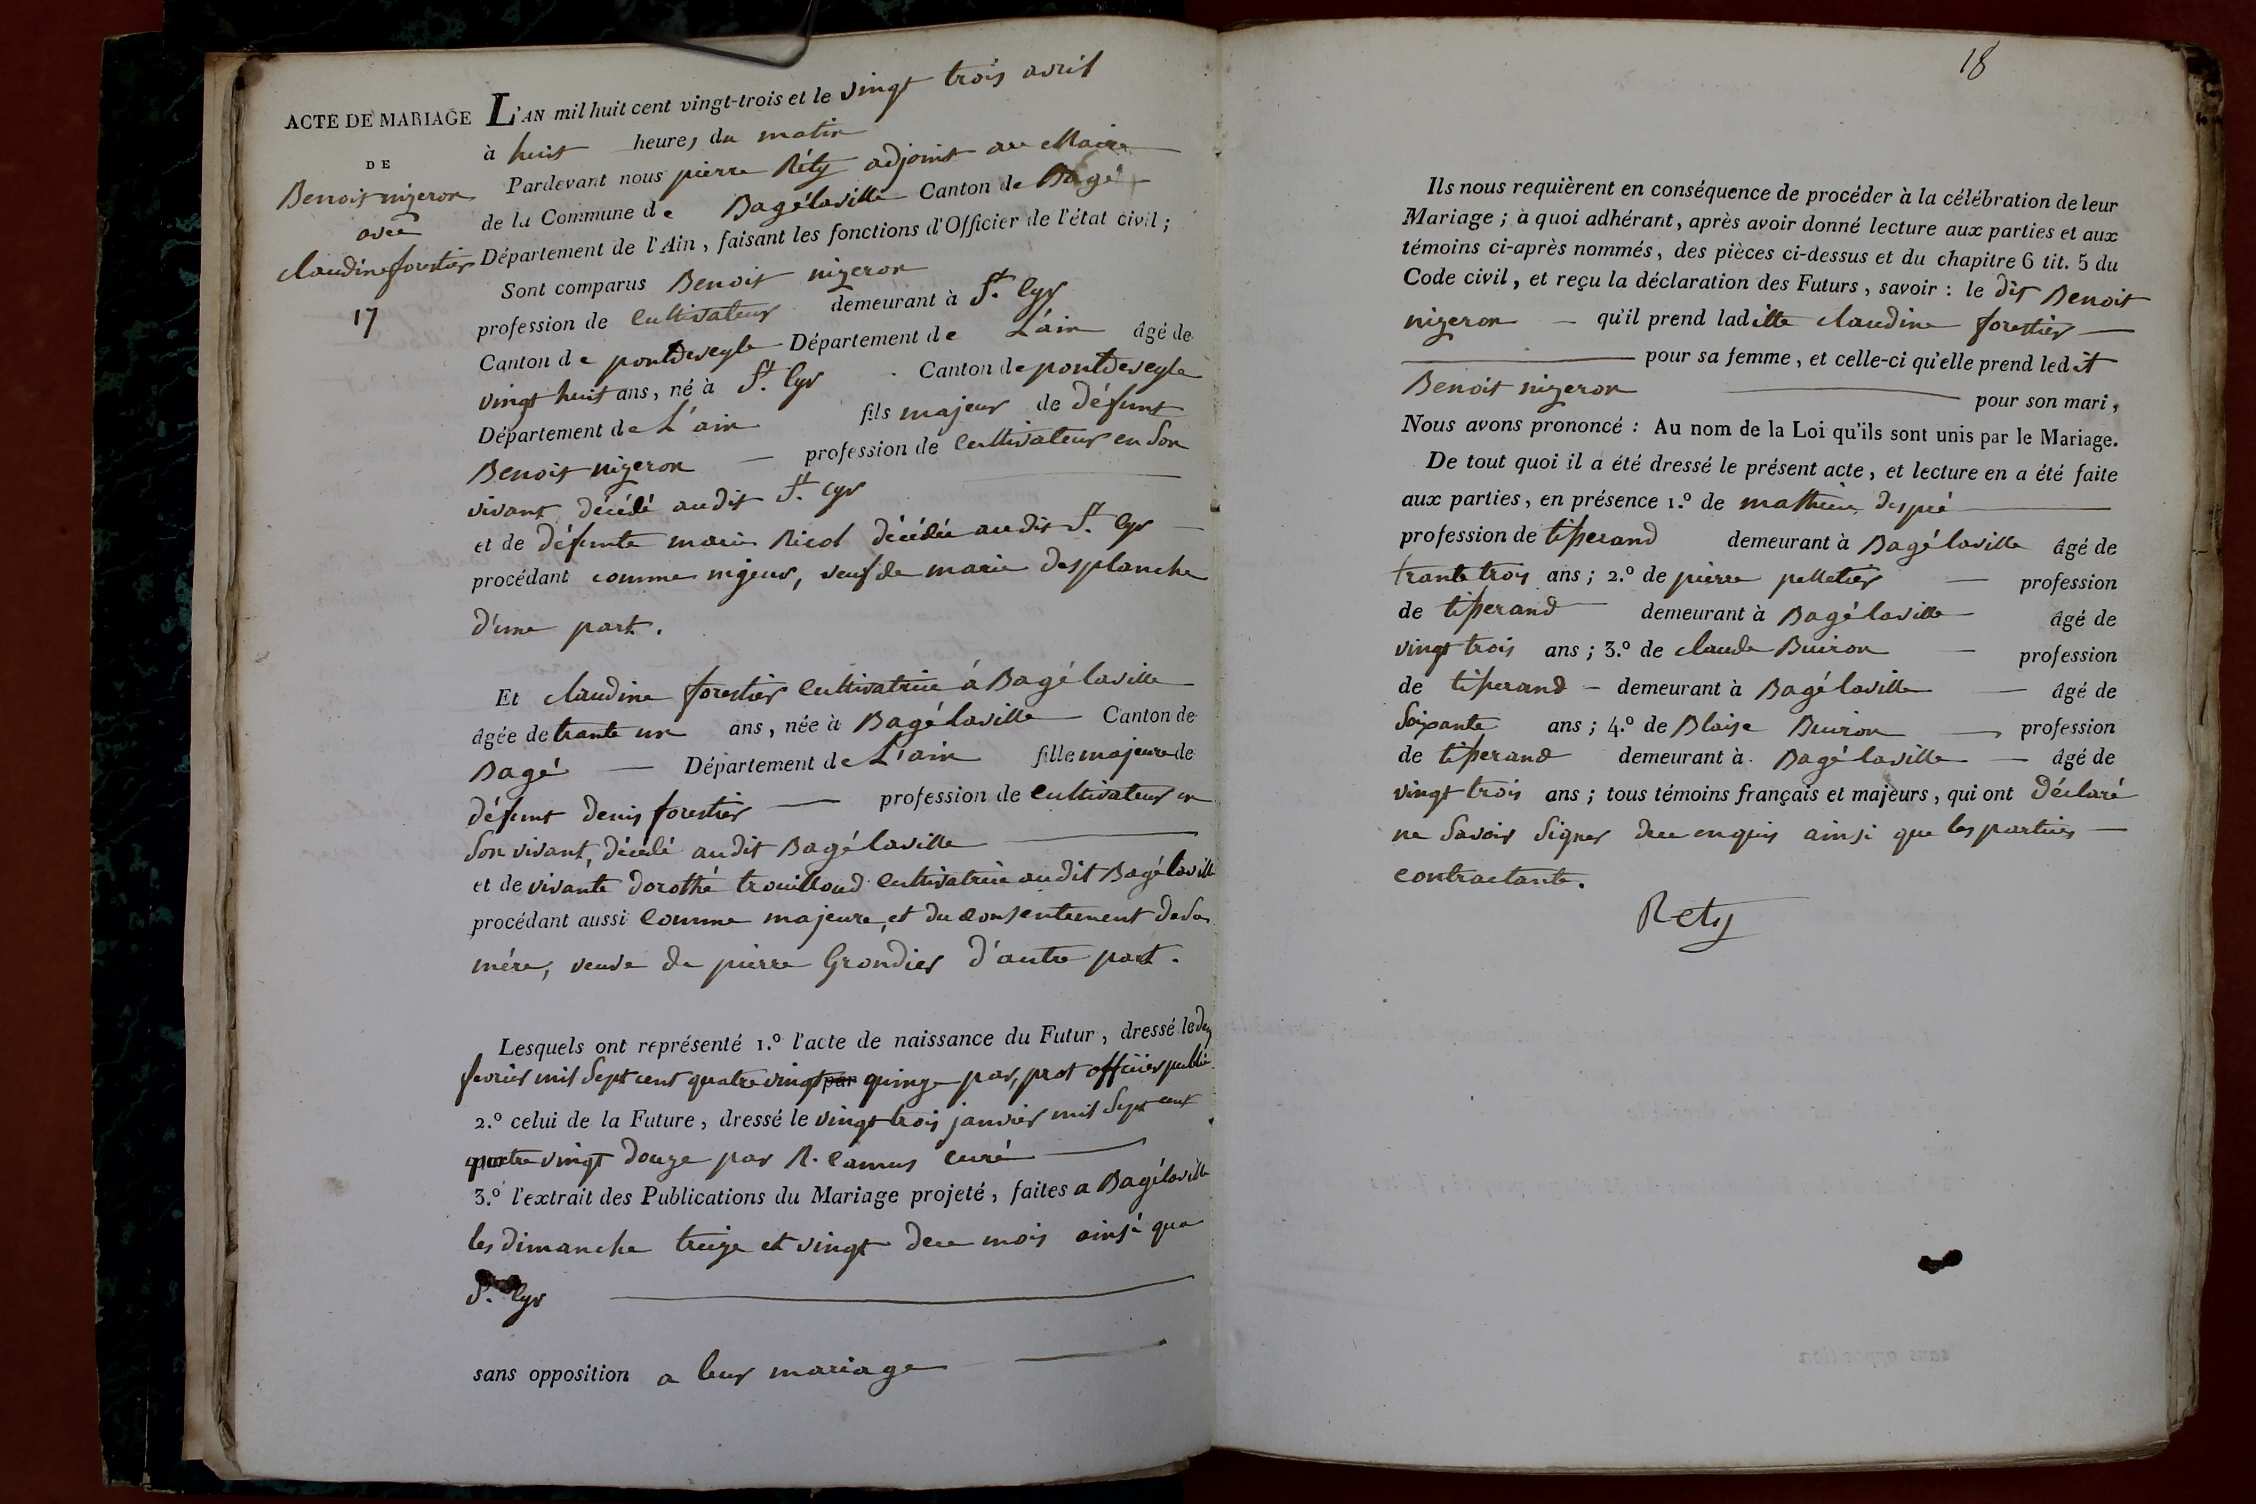 ACTE DE MARIAGE
DE
Benoit nizeron
avec
claudine forestier
17
L'AN mil huit cent vingt-trois et le vingt trois avril
à huit heures du matin
Pardevant nous pierre Réty adjoint au Maire
de la Commune de Bagélaville Canton de Bagé
Département de l'Ain, faisant les fonctions d'Officier de l'état civil;
Sont comparus Benoit nizeron
profession de cultivateur demeurant à St. Cyr
Canton de pontdeveyle Département de L'ain âgé de
vingt huit ans, né à St. Cyr Canton de pontdeveyle
Département de L'ain fils majeur de défunt
Benoit nizeron — profession de cultivateur en son
vivant, décédé audit St. cyr
et de défunte marie Ricol décédée audit St. Cyr —
procédant comme majeur, veuf de marie desplanche
d'une part.
Et claudine forestier cultivatrice à Bagé laville
âgée de trante un ans, née à Bagé laville Canton de
Bagé — Département de L'ain fille majeure de
défunt denis forestier — profession de cultivateur en
son vivant, décédé audit Bagé laville
et de vivante dorothé trouilloud cultivatrice audit Bagé laville
procédant aussi comme majeure, et du consentement de sa
mére, veuve de pierre Grondier d'autre part.
Lesquels ont représenté 1.° l'acte de naissance du Futur, dressé le dix
fevrier mil sept cent quatre vingt par quinze par, prost officier public
2.° celui de la Future, dressé le vingt trois janvier mil sept cent
quatre vingt douze par R. Camus curé
3.° l'extrait des Publications du Mariage projeté, faites a Bagélaville
les dimanche treize et vingt de ce mois ainsi que
St. Cyr
sans opposition a leur mariage
18
Ils nous requièrent en conséquence de procéder à la célébration de leur
Mariage; à quoi adhérant, après avoir donné lecture aux parties et aux
témoins ci-après nommés, des pièces ci-dessus et du chapitre 6 tit. 5 du
Code civil, et reçu la déclaration des Futurs, savoir: le dit Benoit
nizeron — qu'il prend laditte claudine forestier —
pour sa femme, et celle-ci qu'elle prend ledit
Benoit nizeron pour son mari,
Nous avons prononcé: Au nom de la Loi qu'ils sont unis par le Mariage.
De tout quoi il a été dressé le présent acte, et lecture en a été faite
aux parties, en présence 1.° de mathieu, dupré
profession de tisserand demeurant à Bagélaville âgé de
trante trois ans; 2.° de pierre pelletier — profession
de tisserand demeurant à Bagélaville âgé de
vingt trois ans; 3.° de claude Buiron — profession
de tisserand – demeurant à Bagélaville — âgé de
soixante ans; 4.° de Blaise Buiron — profession
de tisserand demeurant à Bagélaville — âgé de
vingt trois ans; tous témoins français et majeurs, qui ont déclaré
ne savoir signer de ce enquis ainsi que les parties —
contractante.
Rety